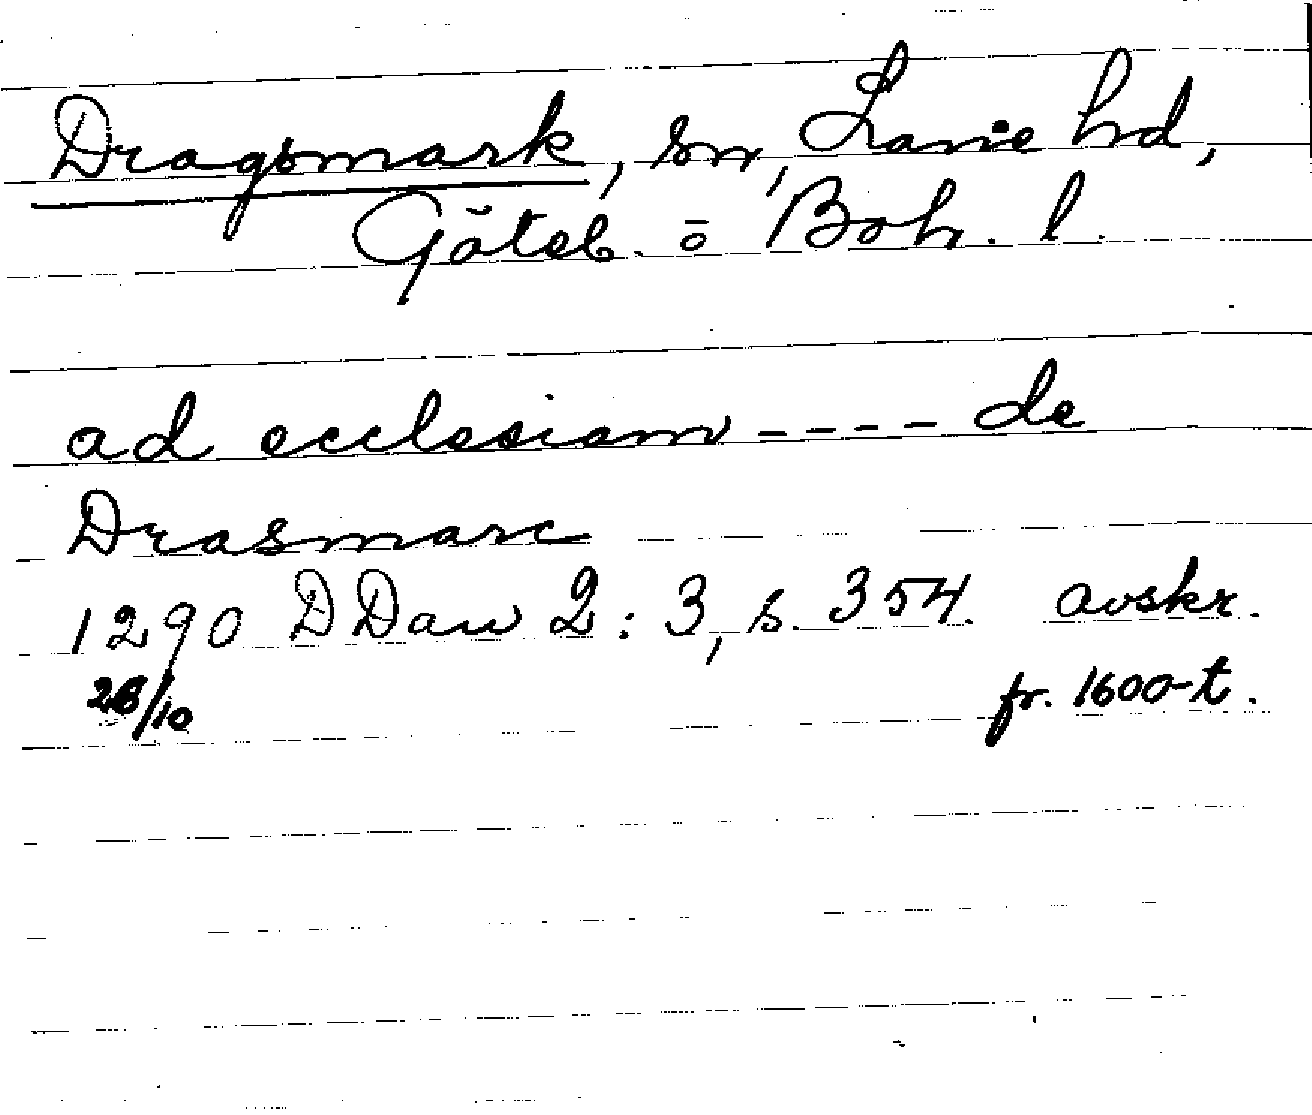 Dragsmark, sn, Lane hd,
Göteb. o Boh. l.
ad ecclesiam ---- de
Drasmarc
1290 DDan 2:3, s. 354. avskr.
26/10 fr. 1600-t.